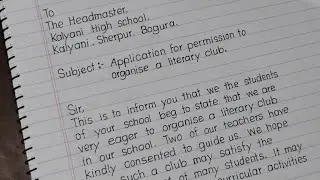 To
The Headmaster,
Kalyani High school,
Kalyani. Sherpur. Bogura.
Subject:- Application for permission to
organise a literary club.
Sir,
This is to inform you that we the students
of your school beg to state that we are
very eager to organise a literary club
in our school. Two of our teachers have
kindly consented to guide us. We hope
such a club may satisfy the
of many students. It may
curricular activities